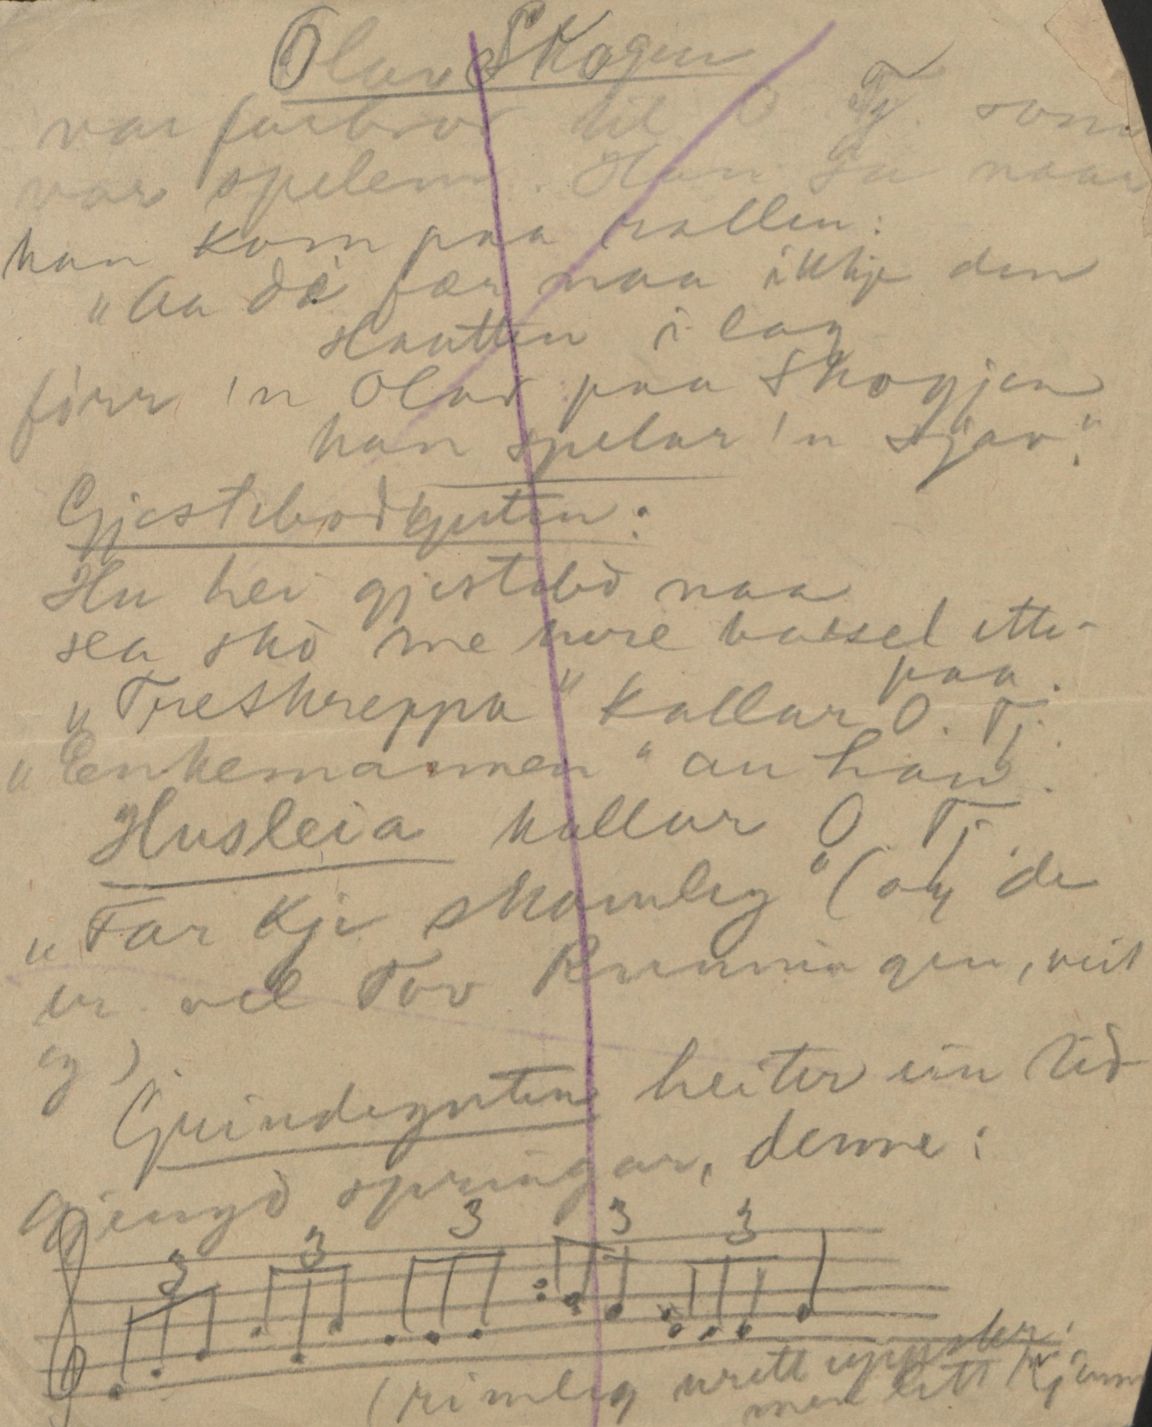 Olav Skogen
var farbror til O Tj. som
var spelem. Han sa naar
han kom paa vollen:
"Aa dæ fær naa ikkje den
slaatten i lag
förr 'n Olav paa Skogjen
han spelar 'n sjav."
Gjestebodguten:
Hu hei gjestebod naa
sea sko me vere bassel ette-
paa.
"Treskreppa" kallar O. Tj.
"Enkemannen" au han.
Husleia kallar O Tj
"Far kje skamleg" (og de
er vel Tov Runningen, veit
eg)
Grindeguten heiter ein lid
gjengd springar, denne:
3 3 3 3 3
(rimleg urett uppskr.
men lett kjenn